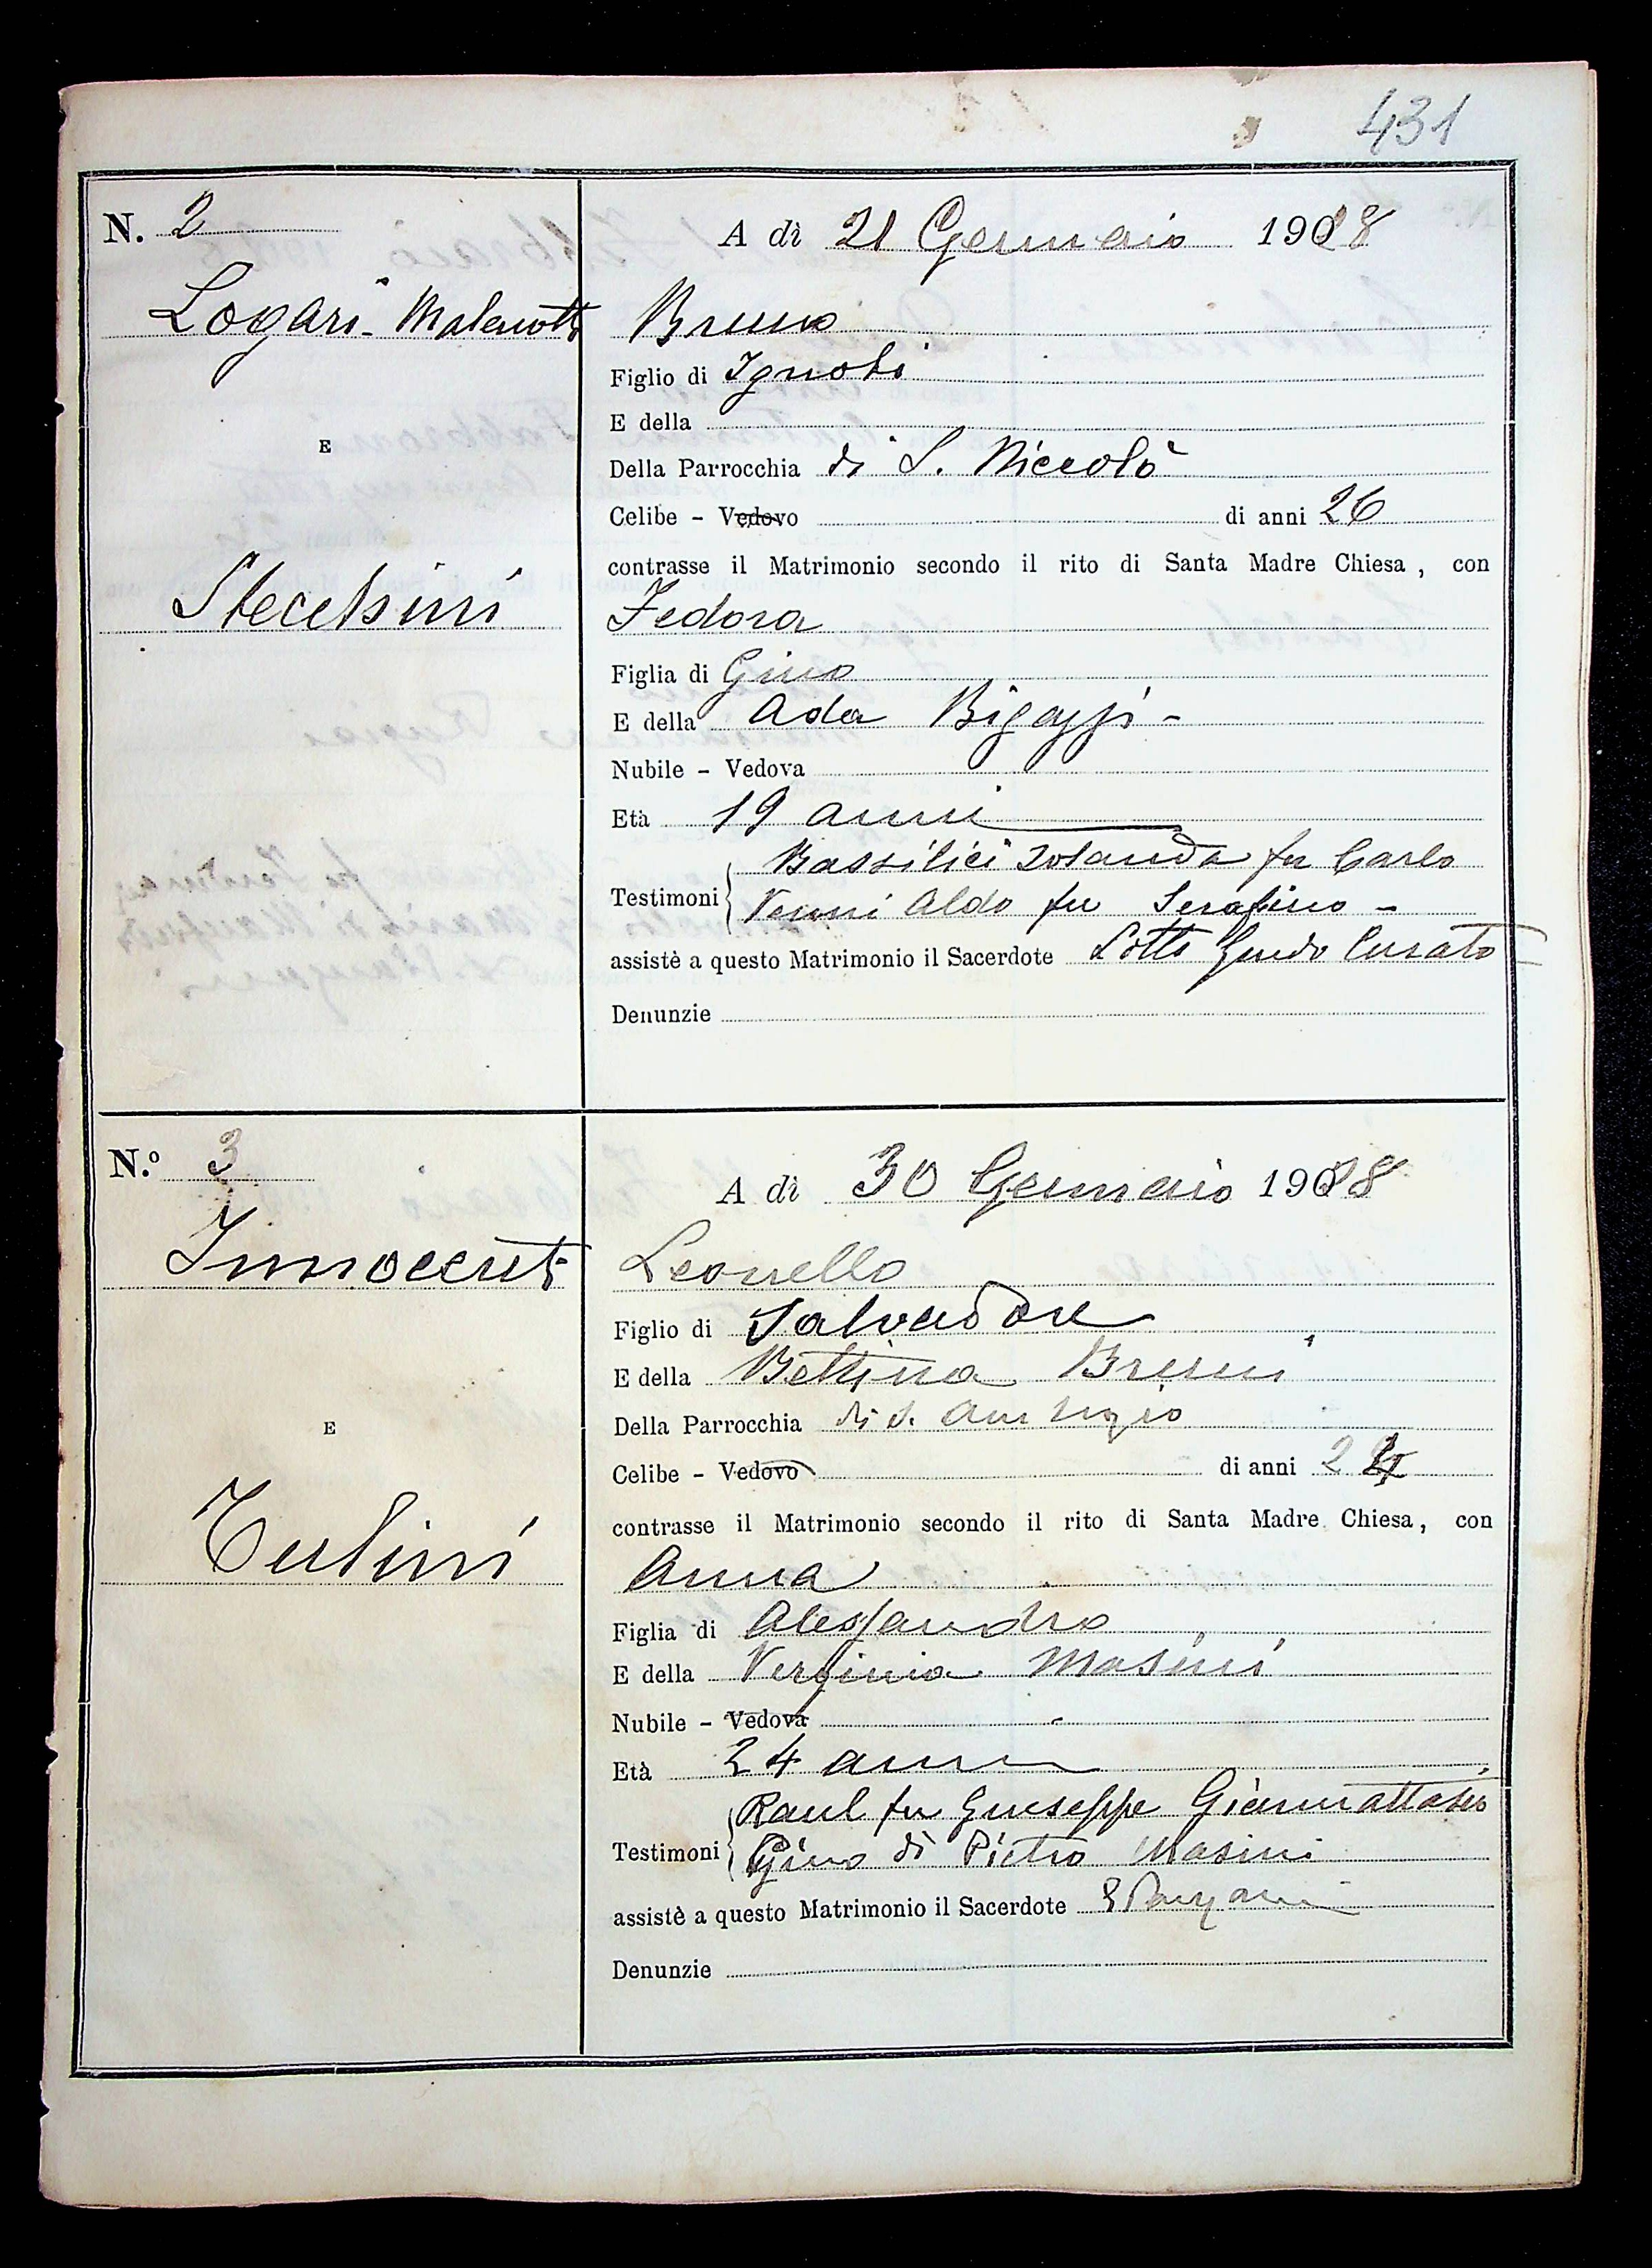 431
N. 2
A dì 21 Gennaio 1928
Logari - Malenotti
Bruno
Figlio di Ignoti
E della
E
Della Parrocchia di S. Niccolò
Celibe - Vedovo di anni 26
contrasse il Matrimonio secondo il rito di Santa Madre Chiesa, con
Stecchini
Fedora
Figlia di Gino
E della Ada Bigazzi -
Nubile - Vedova
Età 19 anni
Bassilici Iolanda fu Carlo
Testimoni Vanni Aldo fu Serafino -
assistè a questo Matrimonio il Sacerdote Lotti Guido Curato
Denunzie
N.º 3
A dì 30 Gennaio 1928
Innocenti
Leonello
Figlio di Salvadore
E della Bettina Bresci
E
Della Parrocchia di S. Ambrogio
Celibe - Vedovo di anni 24
contrasse il Matrimonio secondo il rito di Santa Madre Chiesa, con
Anna
Figlia di Alessandro
E della Verginia Masini
Nubile - Vedova
Età 24 anni
Raul fu Giuseppe Giammattasio
Testimoni Gino di Pietro Masini
assistè a questo Matrimonio il Sacerdote
Denunzie